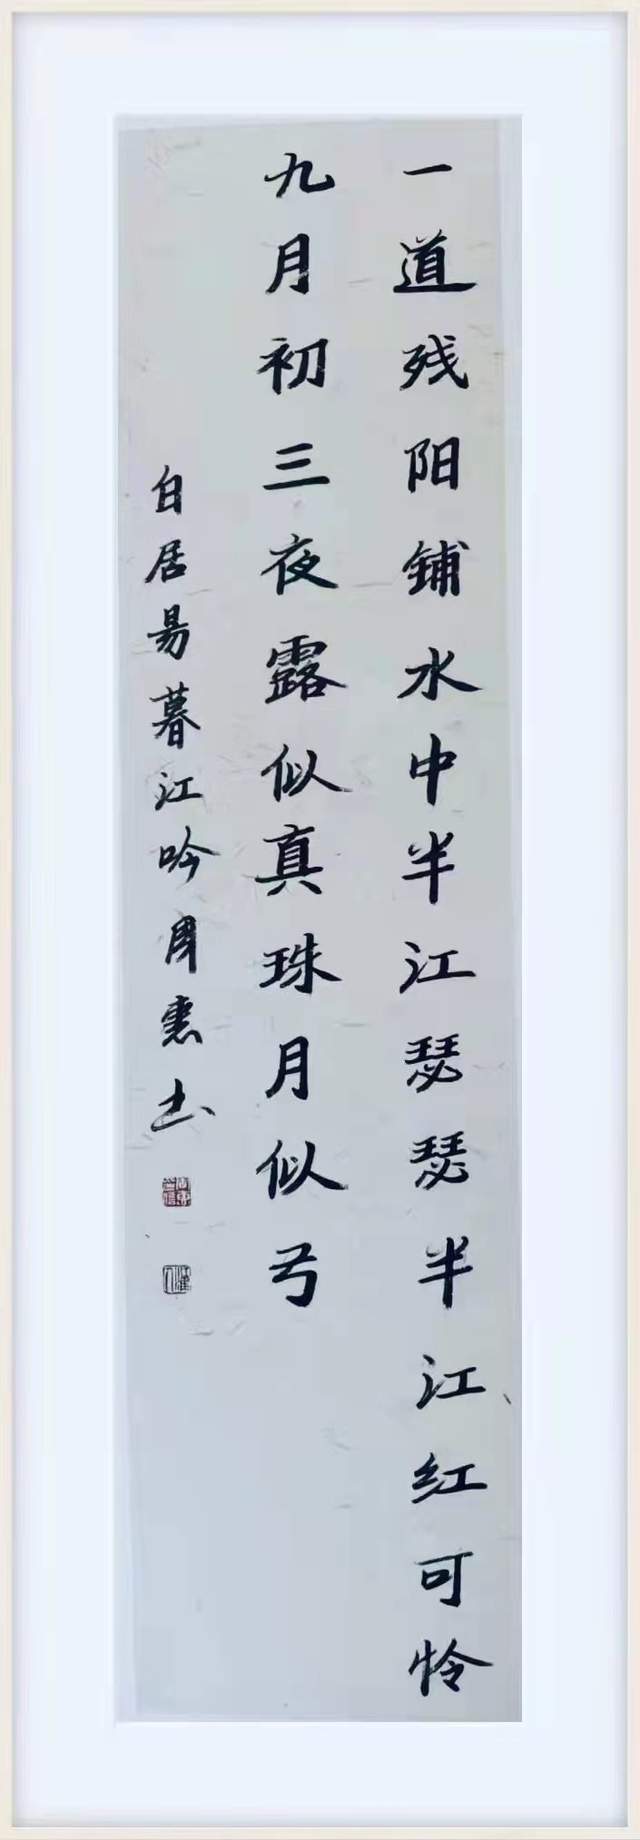 一道残阳铺水中半江瑟瑟半江红可怜
九月初三夜露似真珠月似弓
白居易暮江吟周惠书